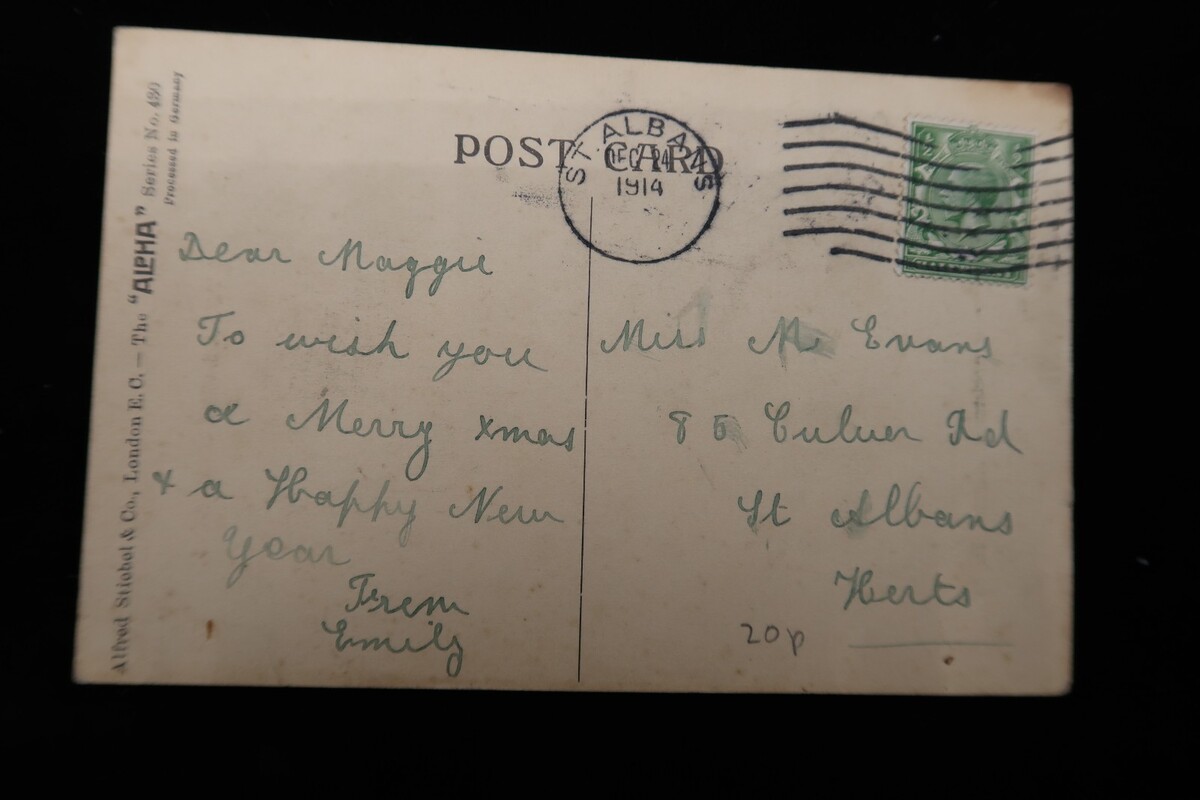 POST CARD
ST ALBANS
DEC 24
1914
Alfred Stiebel & Co., London E.C. — The "ALPHA" Series No. 490
Processed in Germany
Dear Maggie
To wish you
a Merry Xmas
& a Happy New
Year
From
Emily
Miss M. Evans
85 Culver Rd
St Albans
Herts
20p